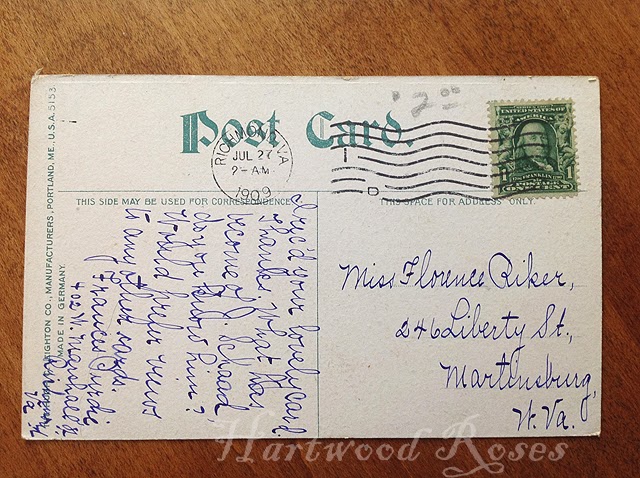 '2.00
Post Card.
RICHMOND, VA.
JUL 27
2- AM
1909
UNITED STATES OF
AMERICA
FRANKLIN
POSTAGE
1
THIS SIDE MAY BE USED FOR CORRESPONDENCE
THIS SPACE FOR ADDRESS ONLY.
HUGH C. LEIGHTON CO., MANUFACTURERS, PORTLAND, ME., U.S.A. 5153
MADE IN GERMANY.
I rec'd your lovely card.
Thanks. What has
become of J. Schaad,
do you know him?
Would prefer views
to any other cards.
Frances
402 N.
Va
Miss Florence Riker,
246 Liberty St.,
Martinsburg,
W. Va.
Hartwood Roses